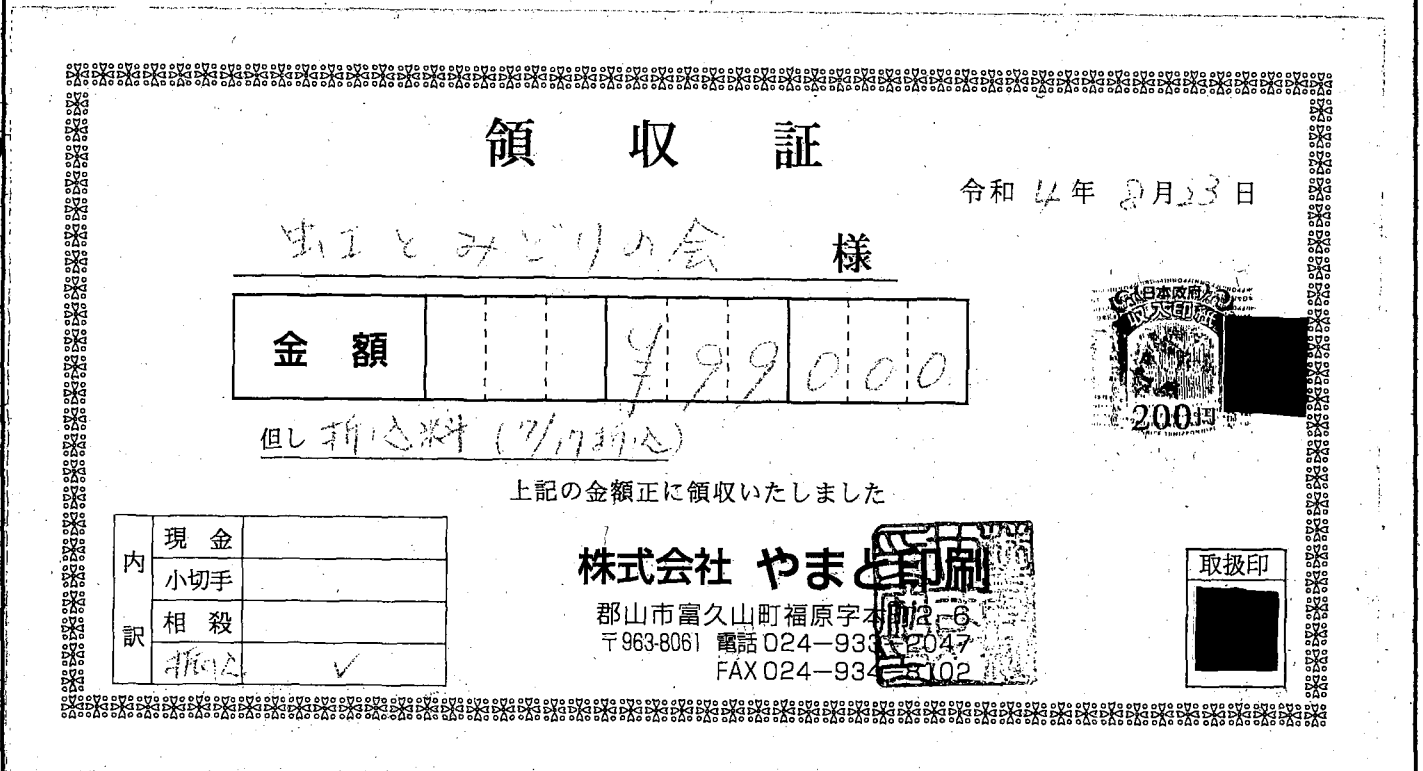 領収証
令和 4年 8月23日
虹とみどりの会 様
金額 ¥99000
但し 折込料 (7/17折込)
日本政府
収入印紙
200円
上記の金額正に領収いたしました
内訳
現金
小切手
相殺
✓
株式会社 やまと印刷
郡山市富久山町福原字本町2-6
〒963-8061 電話024-933-2047
FAX024-934-8102
取扱印